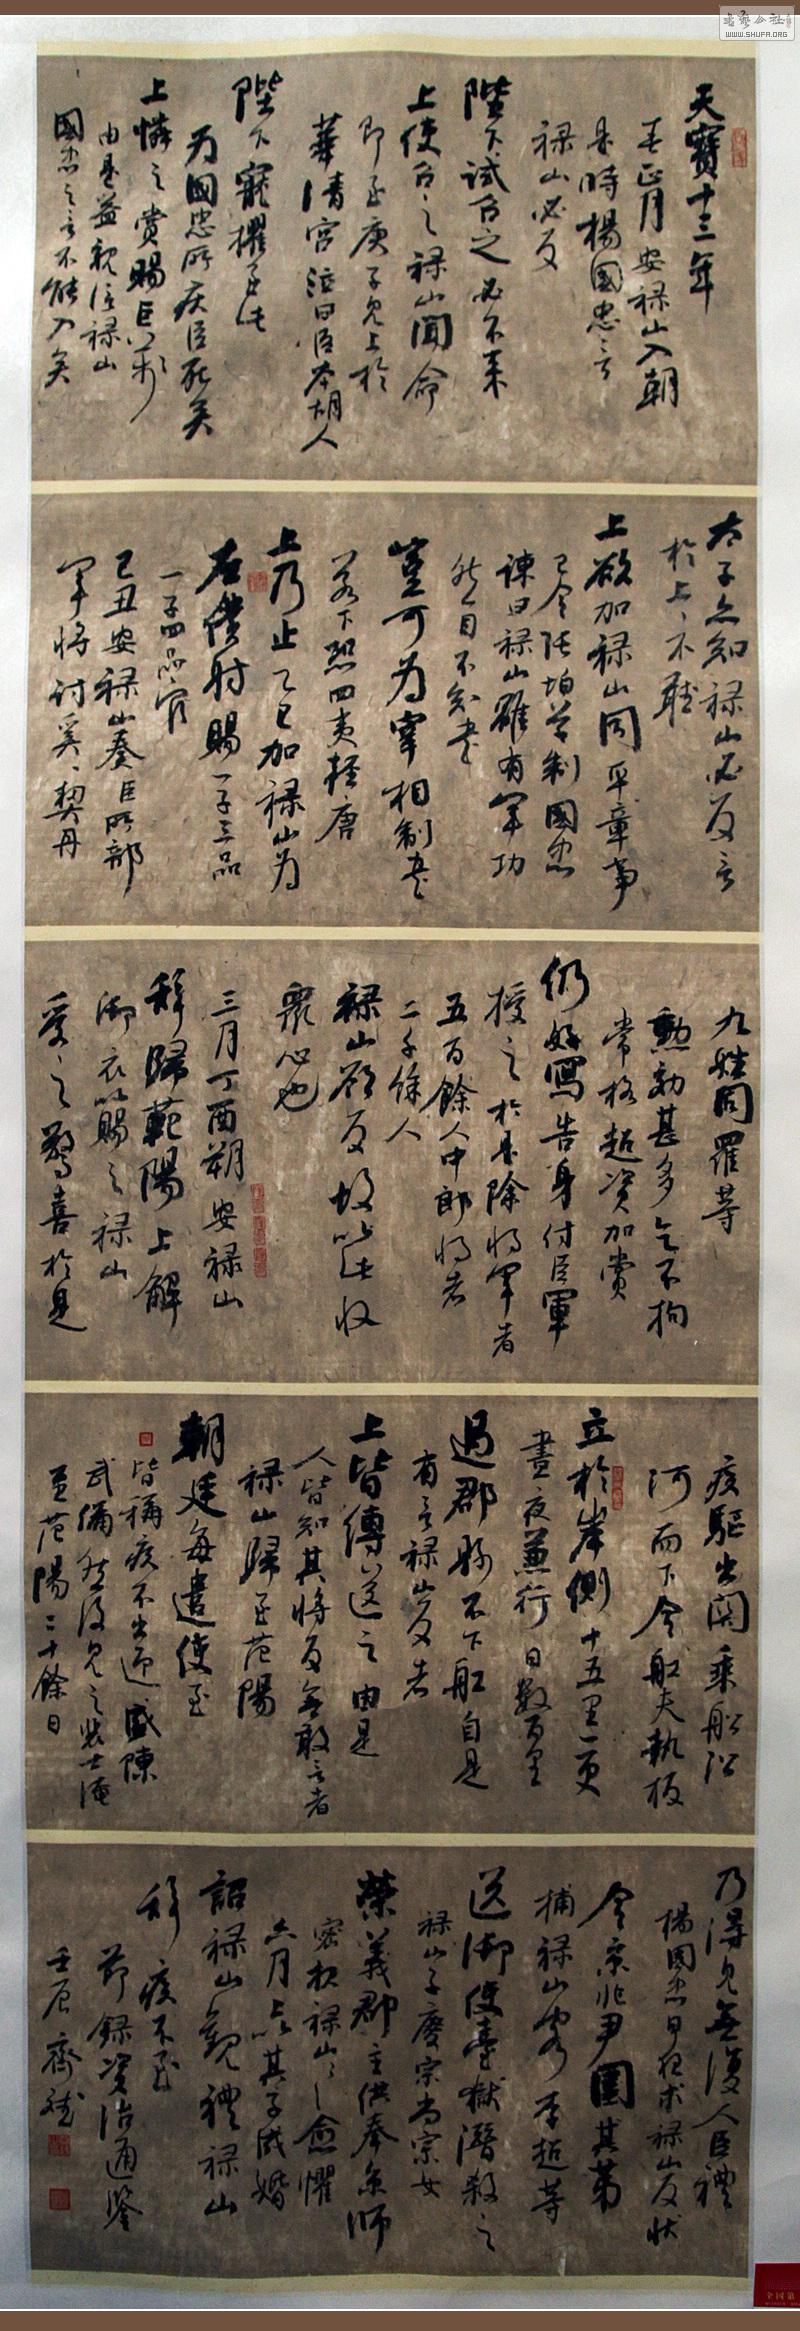 天寶十三年
春正月安祿山入朝
是時楊國忠言
祿山必反
陛下試召之必不來
上使召之祿山聞命
即至庚子見上於
華清宮泣曰臣本胡人
陛下寵擢至此
為國忠所疾臣死矣
上憐之賞賜巨萬
由是益親信祿山
國忠之言不能入矣
太子亦知祿山必反言
於上上不聽
上欲加祿山同平章事
已令張垍草制國忠
諫曰祿山雖有軍功
然目不知書
豈可為宰相制書
若下恐四夷輕唐
上乃止乙巳加祿山為
左僕射賜一子三品
一子四品官
己丑安祿山奏臣所部
軍將討奚契丹
九姓同羅等
勳効甚多乞不拘
常格超資加賞
仍好寫告身付臣軍
授之於是除將軍者
五百餘人中郎將者
二千餘人
祿山欲反故以此收
眾心也
三月丁酉朔安祿山
辭歸範陽上解
御衣以賜之祿山
受之驚喜於是
疾驅出關乘船沿
河而下令船夫執板
立於岸側十五里一更
晝夜兼行日數百里
過郡縣不下船自是
有言祿山反者
上皆縛送之由是
人皆知其將反無敢言者
祿山歸至范陽
朝廷每遣使至
皆稱疾不出迎盛陳
武備然後見之裴士淹
至范陽二十餘日
乃得見無復人臣禮
楊國忠日夜求祿山反狀
令京兆尹圍其第
捕祿山客李超等
送御史臺獄潛殺之
祿山子慶宗尚宗女
榮義郡主供奉京師
密報祿山祿山愈懼
六月上以其子成婚
詔祿山觀禮祿山
辭疾不至
節錄資治通鑒
壬辰齊
WWW.SHUFA.ORG
全国第